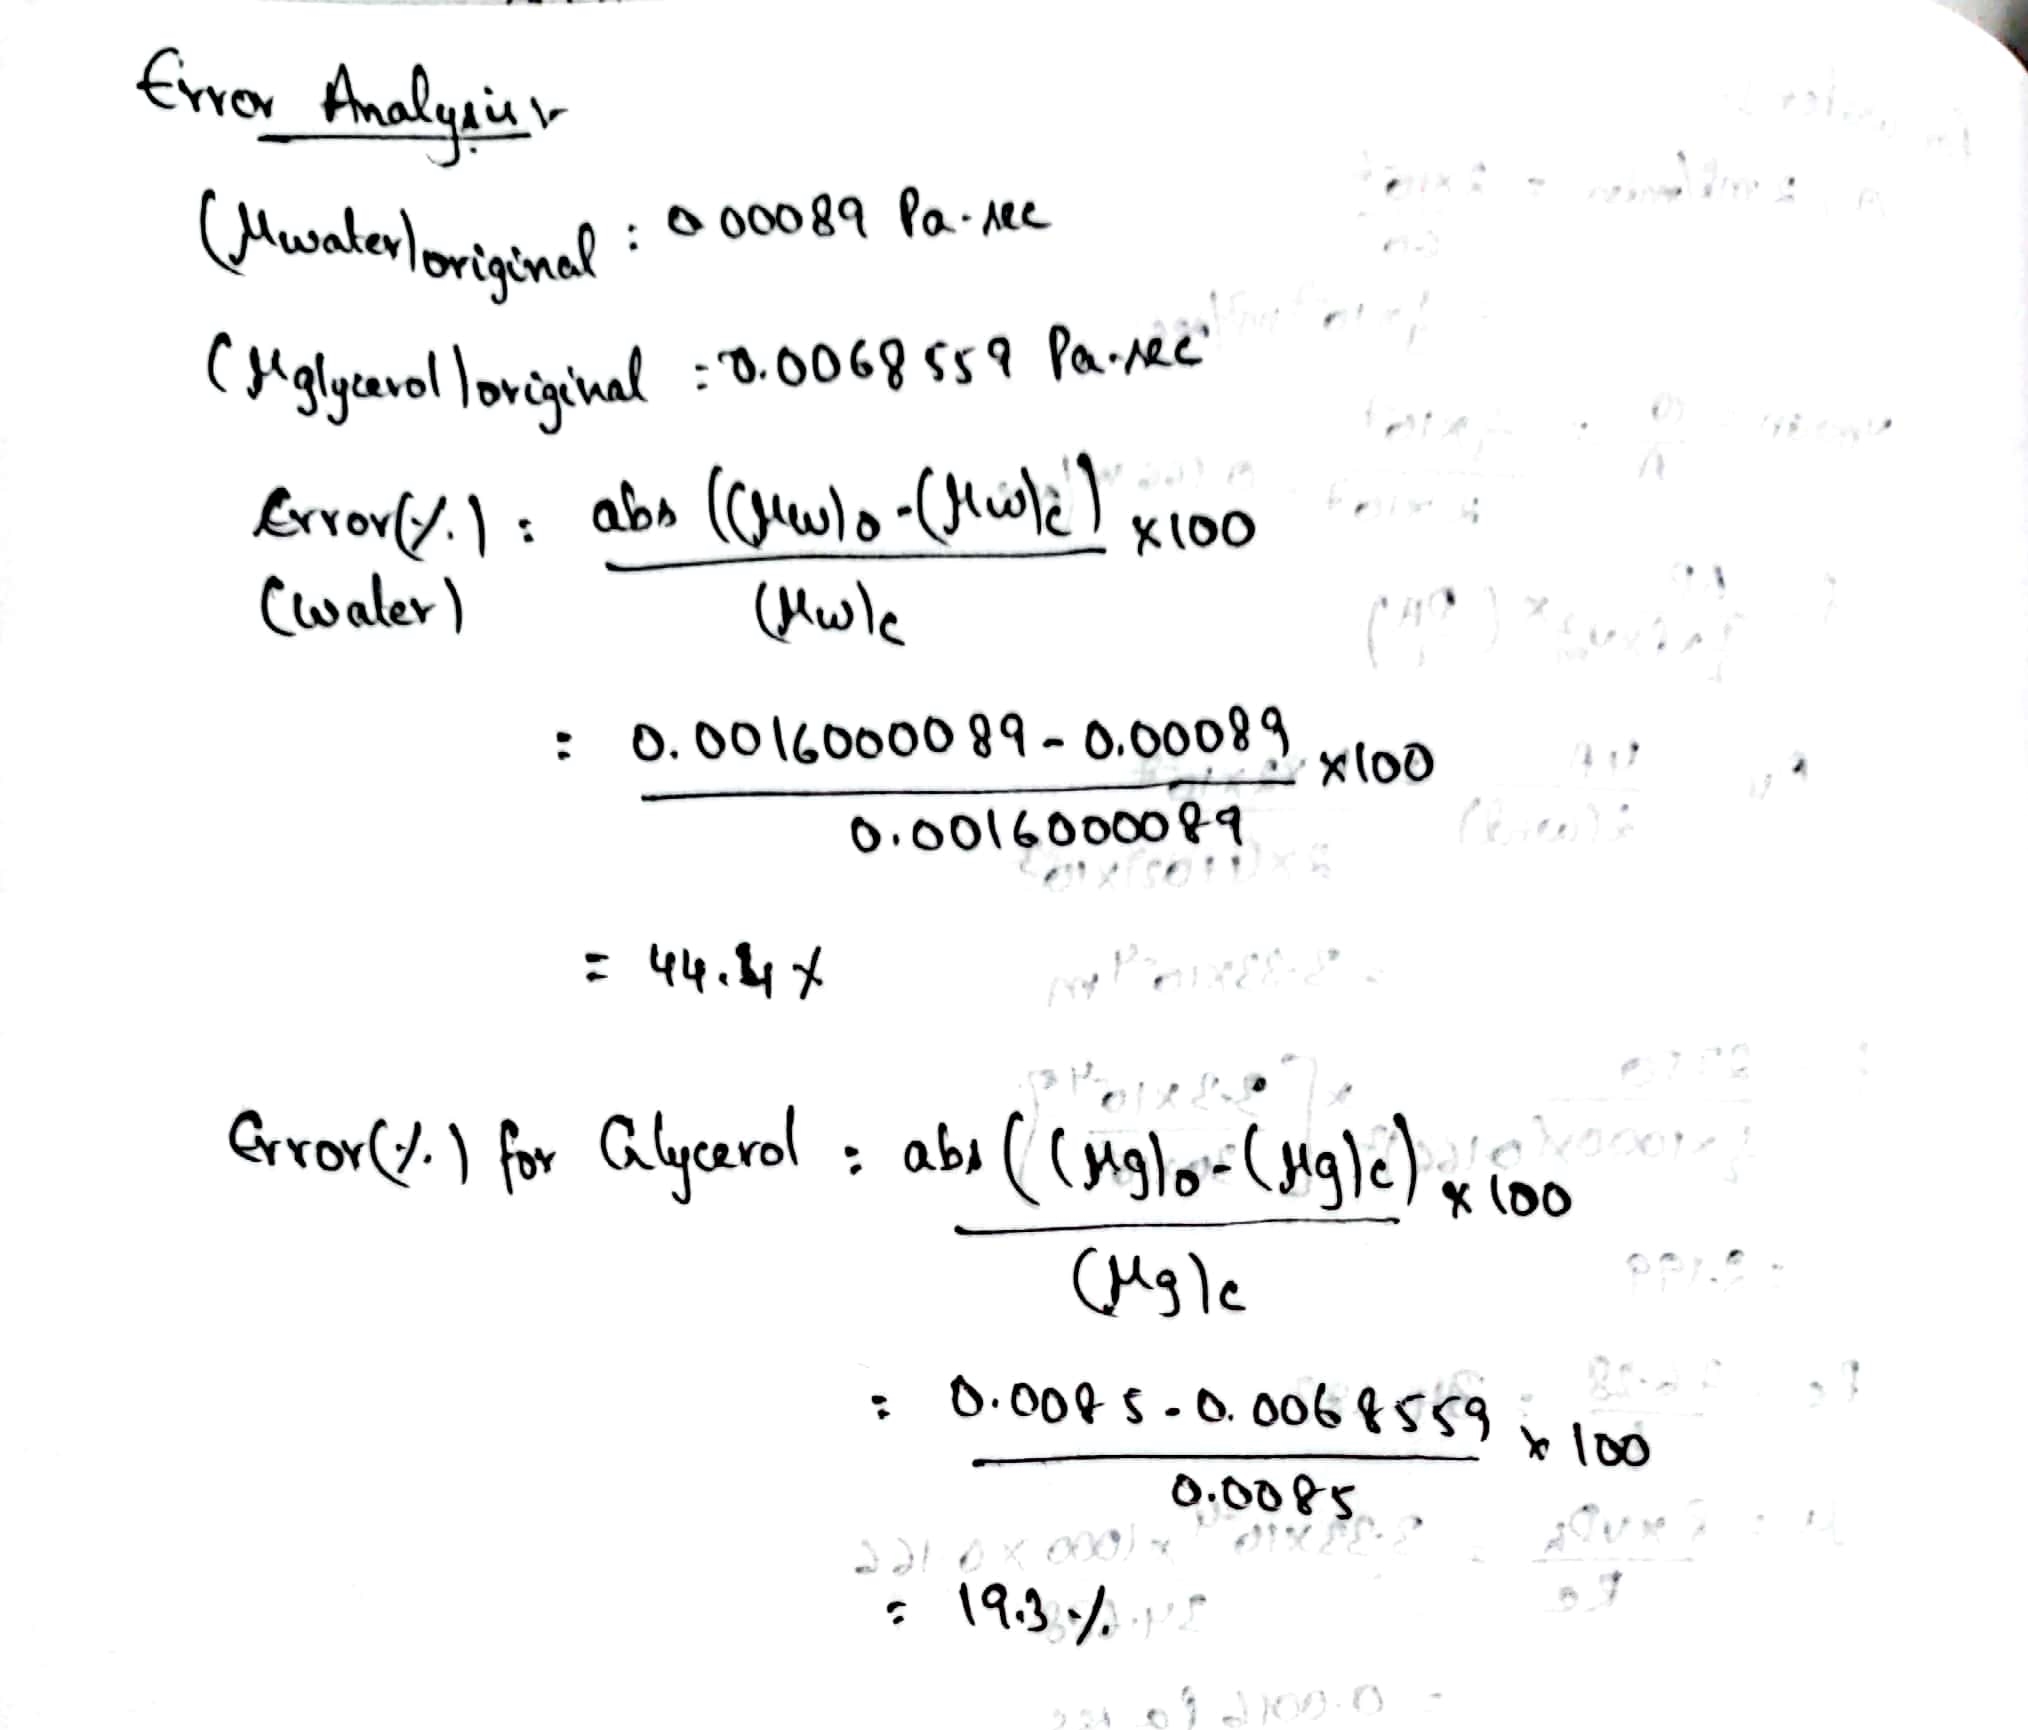 Error Analysis :-
(μwater)original : 0.00089 Pa-sec
(μglycerol)original = 0.0068559 Pa-sec
Error(%) : abs ((μw)o - (μw)c) x100
(water) (μw)c
= 0.0016000089 - 0.00089 x100
0.0016000089
= 44.4 %
Error(%) for Glycerol : abs ((μg)o - (μg)c) x100
(μg)c
= 0.0085 - 0.0068559 x 100
0.0085
= 19.3 %